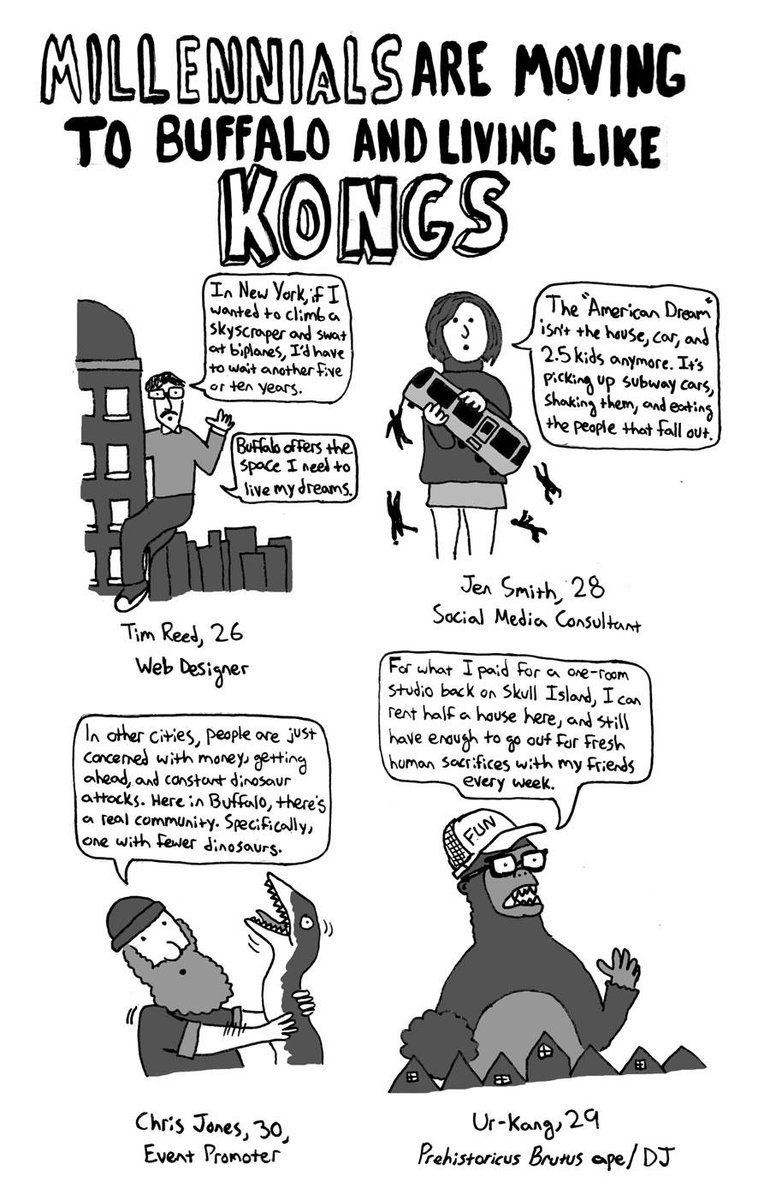 MILLENNIALS ARE MOVING
TO BUFFALO AND LIVING LIKE
KONGS
In New York, if I
wanted to climb a
skyscraper and swat
at biplanes, I'd have
to wait another five
or ten years.
Buffalo offers the
space I need to
live my dreams.
Tim Reed, 26
Web Designer
The "American Dream"
isn't the house, car, and
2.5 kids anymore. It's
picking up subway cars,
shaking them, and eating
the people that fall out.
Jen Smith, 28
Social Media Consultant
In other cities, people are just
concerned with money, getting
ahead, and constant dinosaur
attacks. Here in Buffalo, there's
a real community. Specifically,
one with fewer dinosaurs.
Chris Jones, 30,
Event Promoter
For what I paid for a one-room
studio back on Skull Island, I can
rent half a house here, and still
have enough to go out for fresh
human sacrifices with my friends
every week.
FUN
Ur-Kang, 29
Prehistoricus Brutus ape/DJ